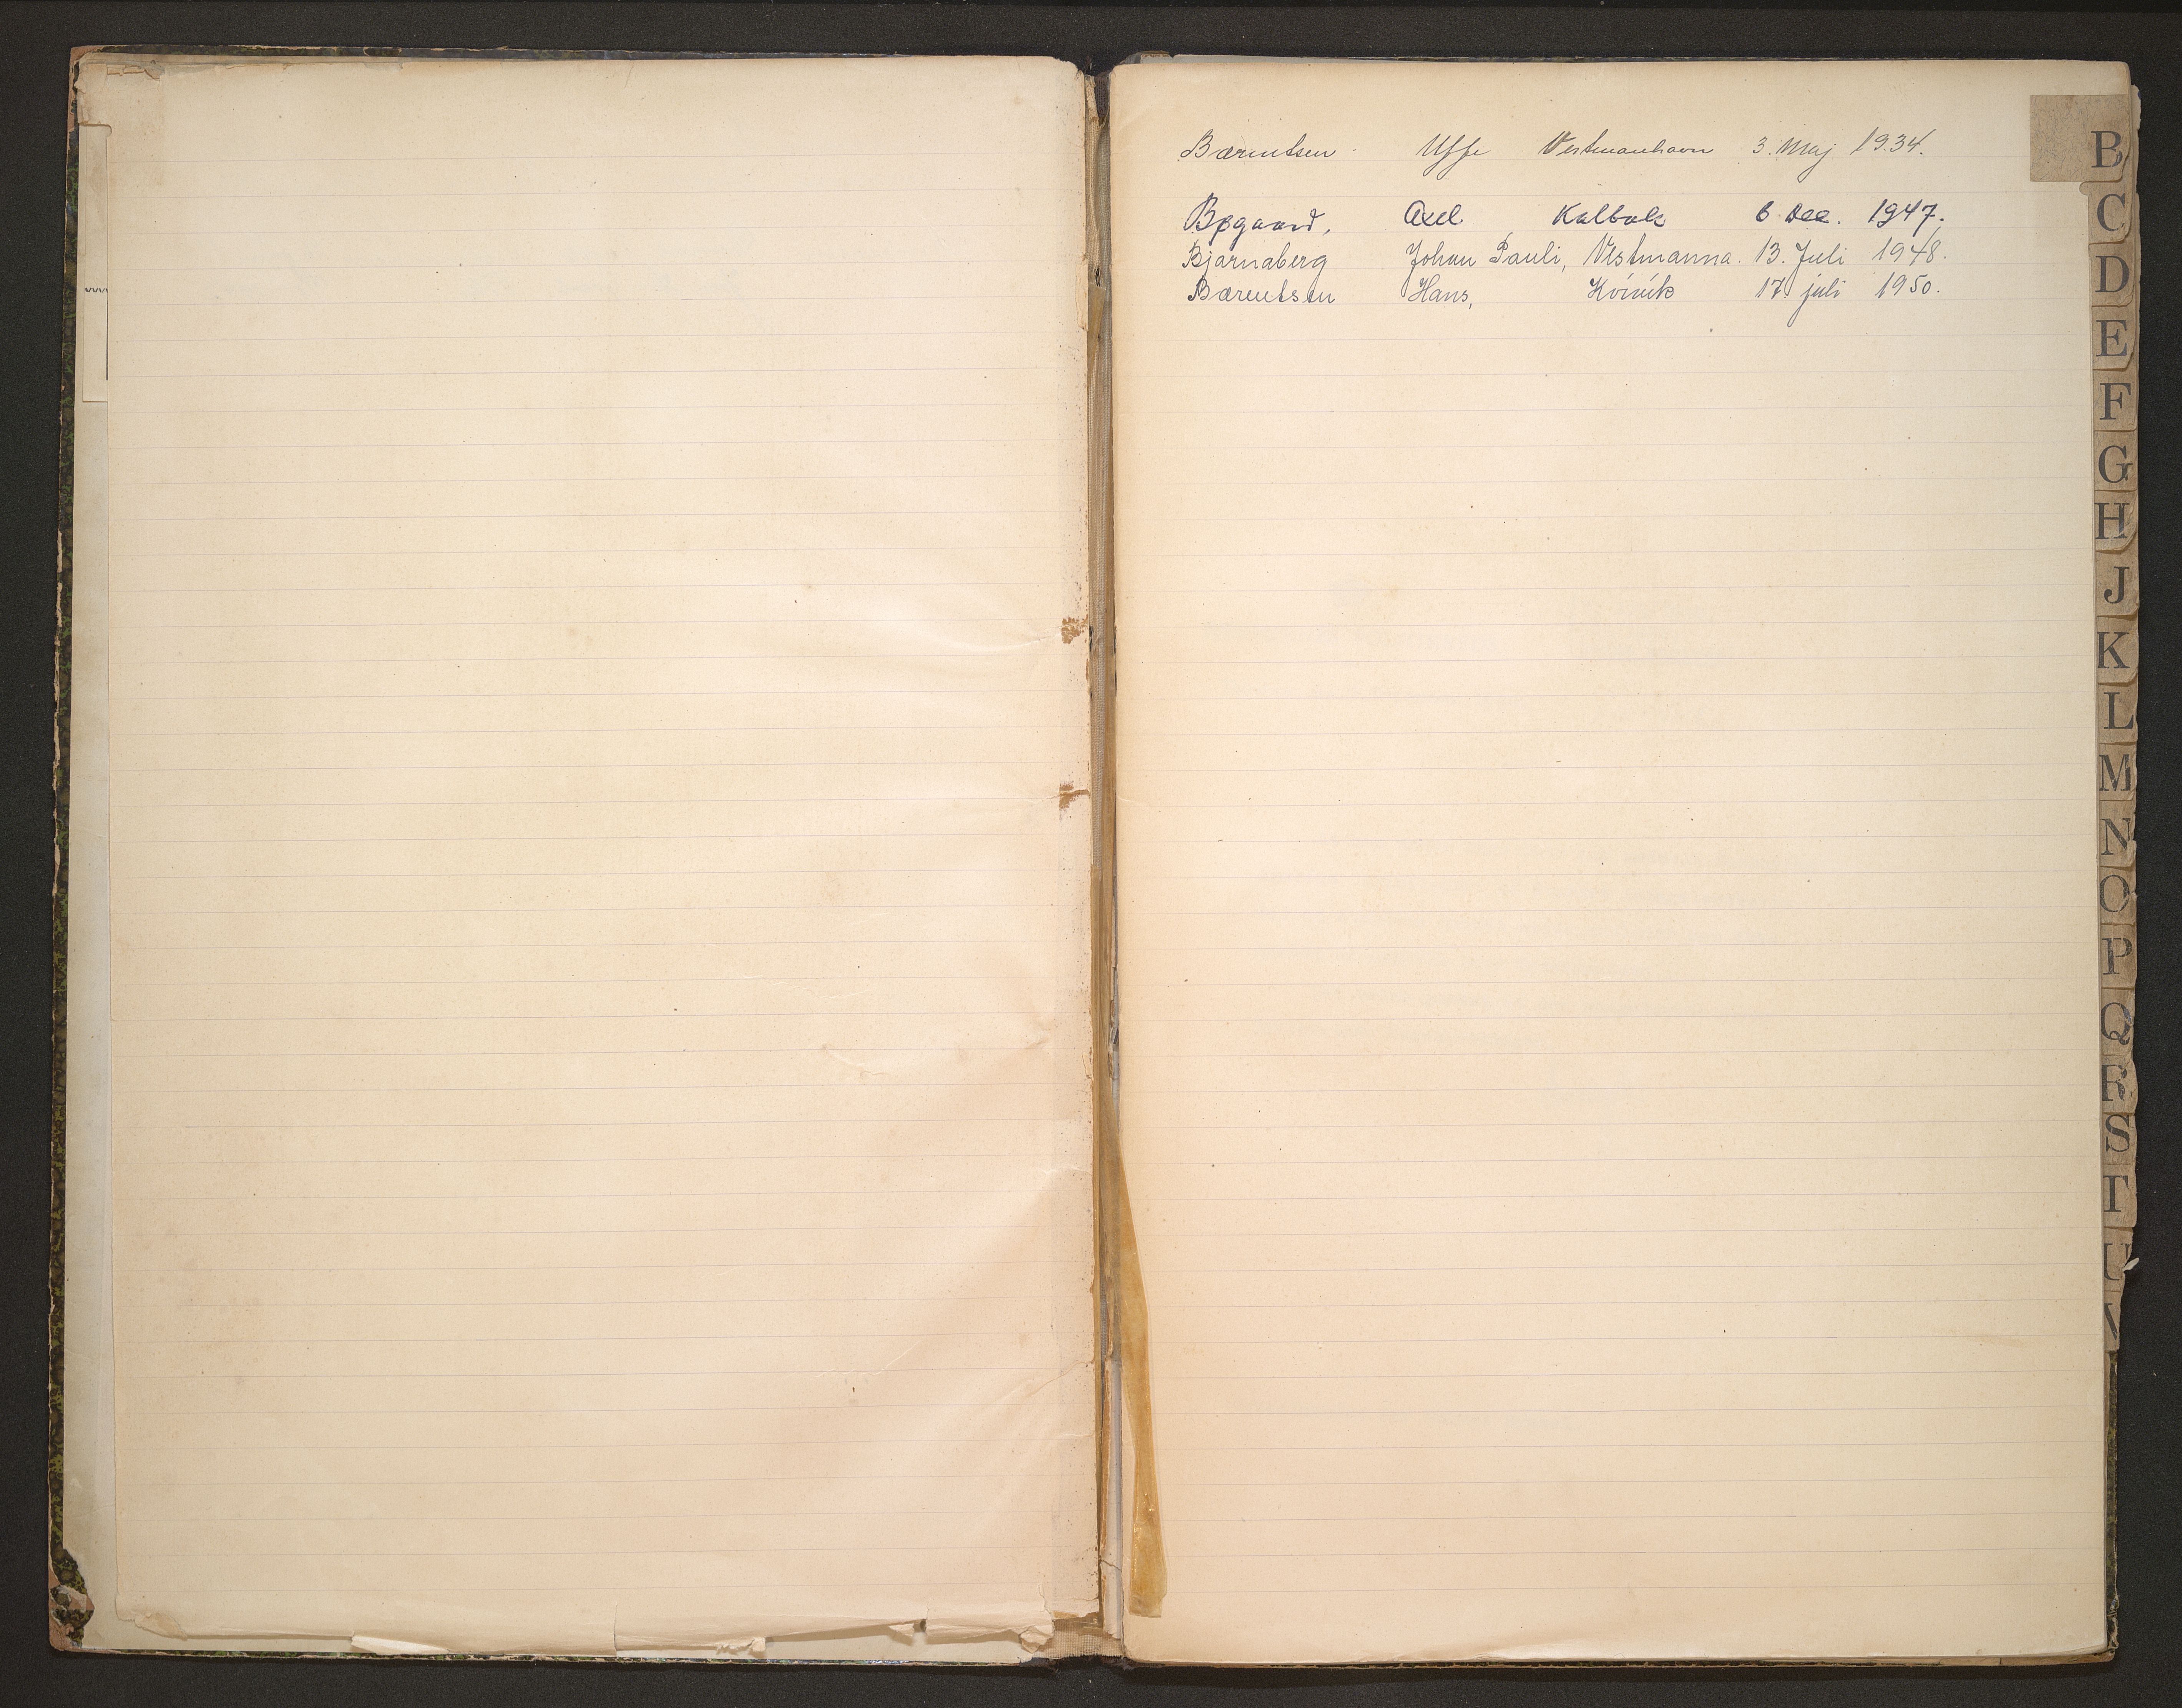 Bærentsen Uffe Vestmanhavn 3. Maj 1934.
Bøgaard, Axel Kalbak 6 Dec. 1947.
Bjarnaberg Johan Pauli, Vestmanna. 13. Juli 1948.
Bærentsen Hans, Kvívík 17. juli 1950.
B
C
D
E
F
G
H
J
K
L
M
N
O
P
Q
R
S
T
U